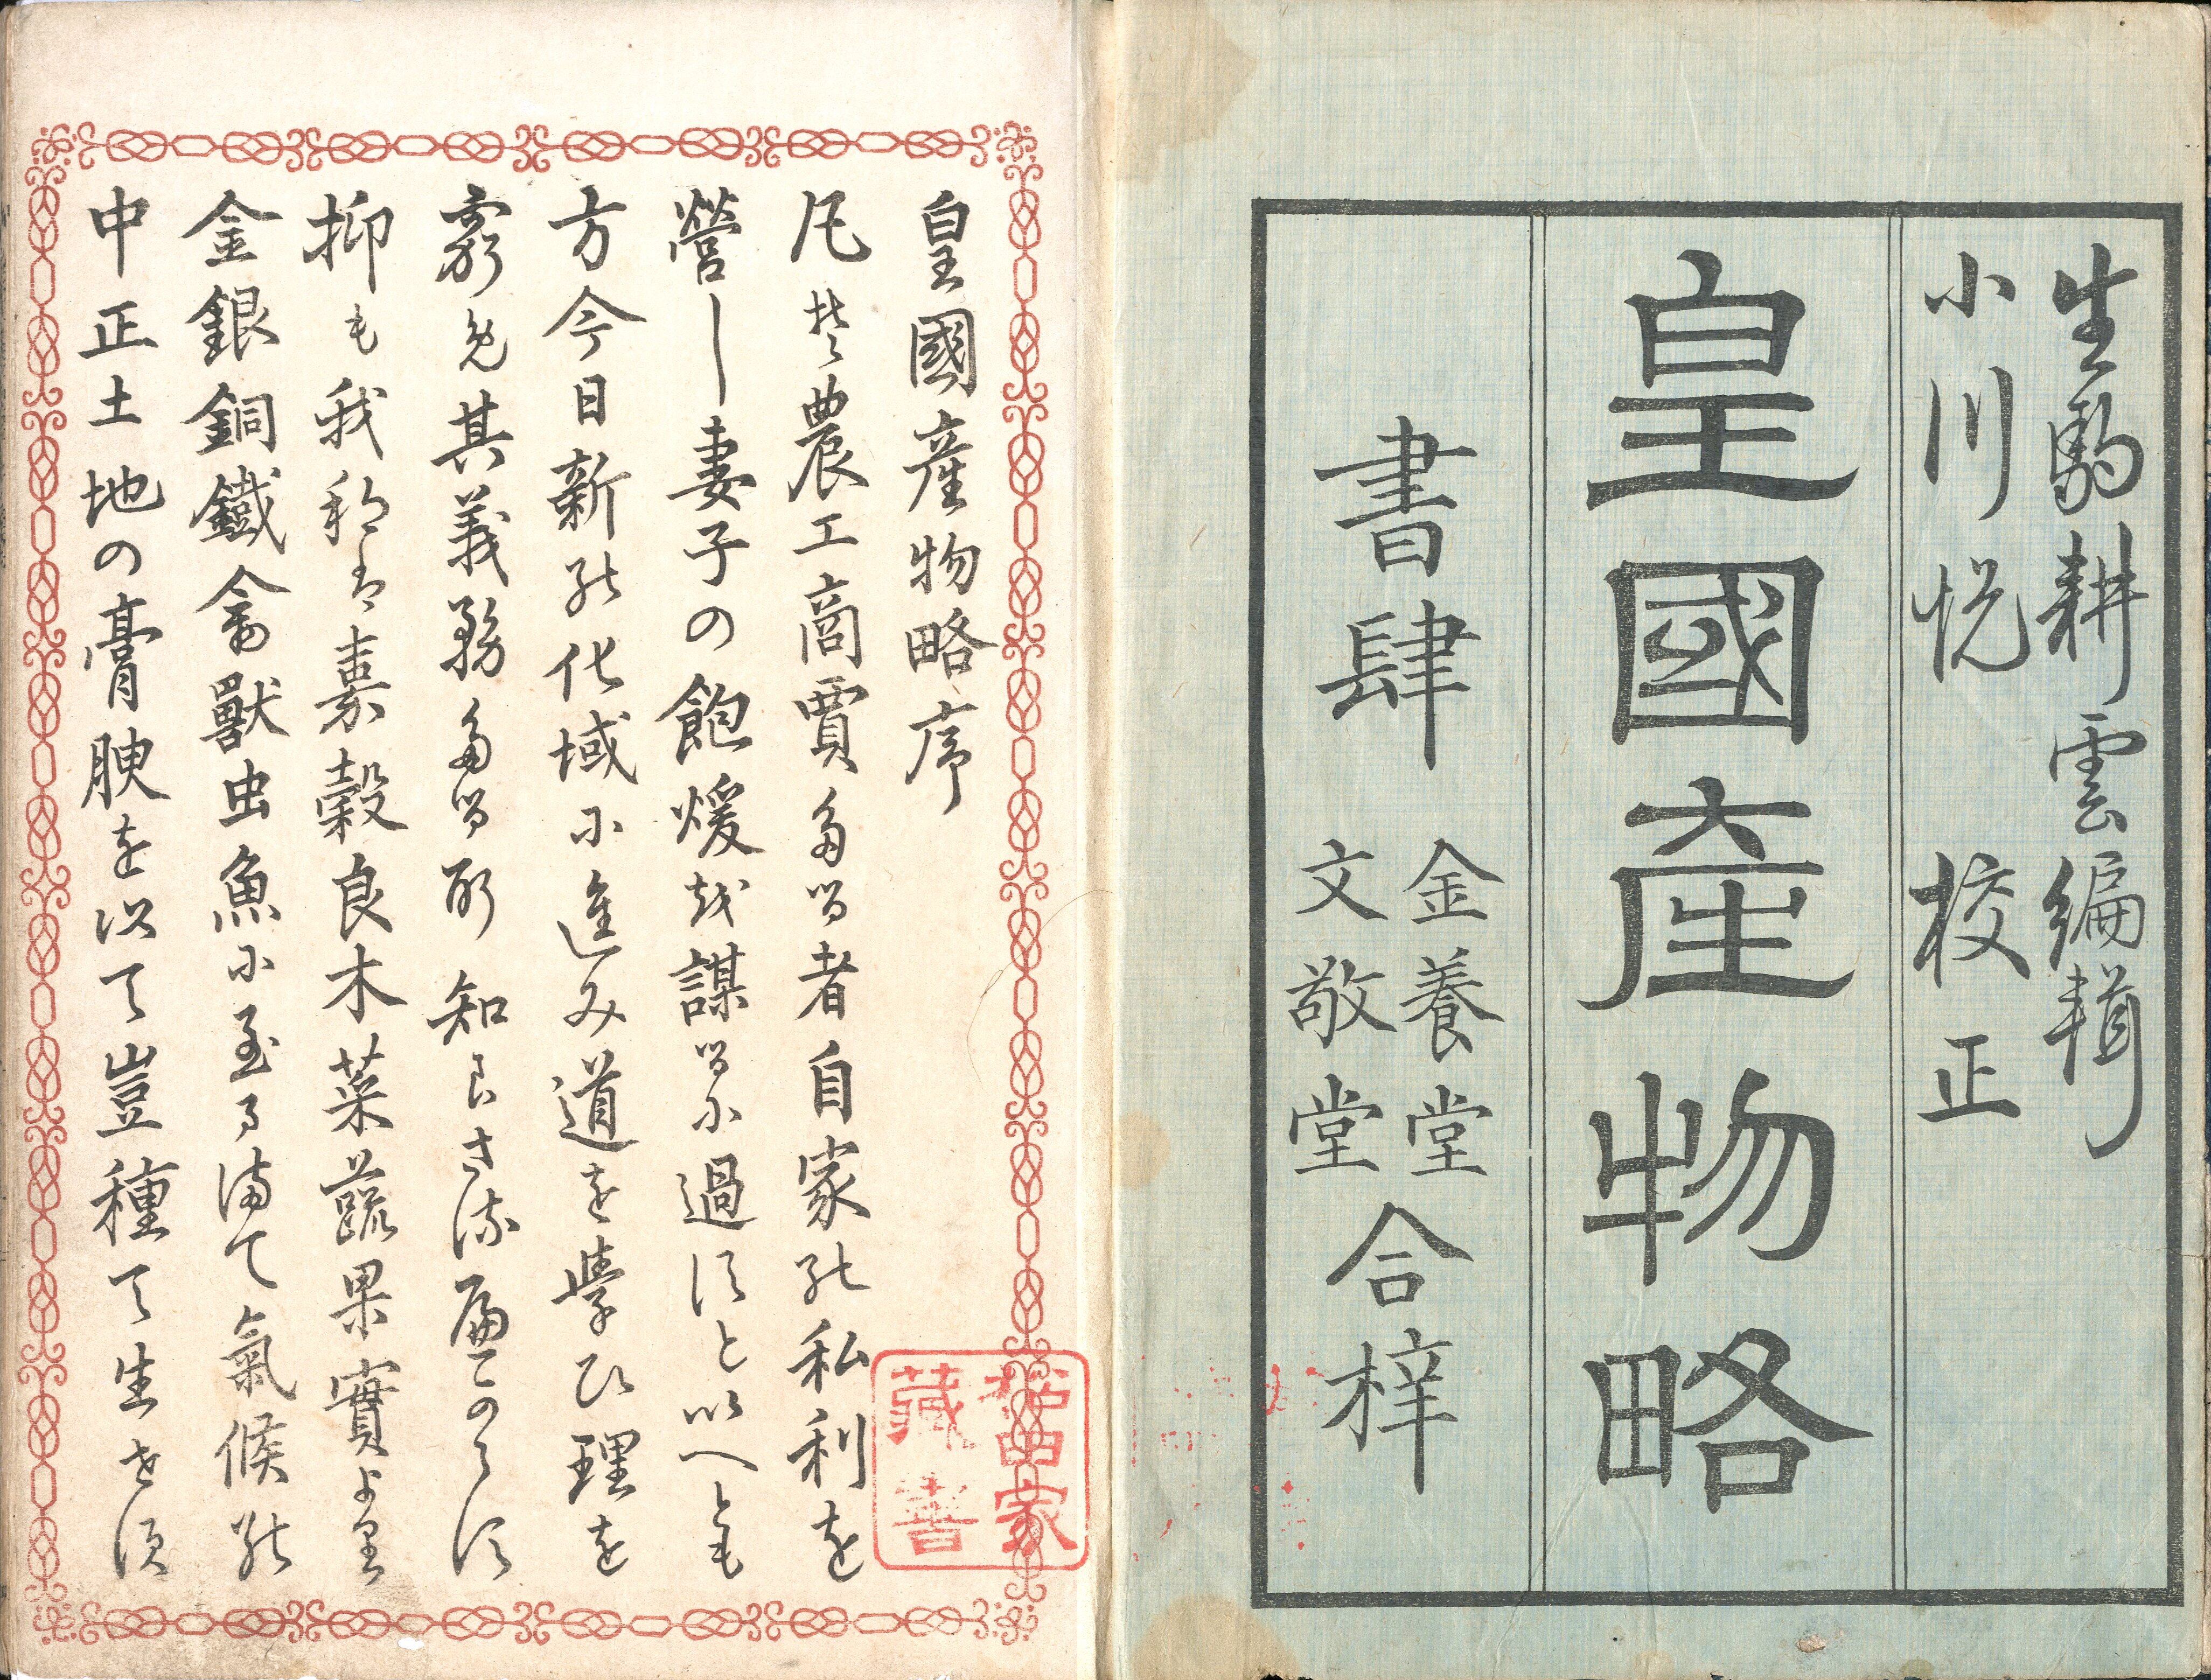 生駒耕雲編輯
小川悦 校正
皇國産物略
書肆
金養堂
文敬堂
合梓
皇國産物略序
凡そ農工商賈たる者自家の私利を
營し妻子の飽煖を謀るに過すと以へとも
方今日新の化域に進み道を學ひ理を
窮め其義務たる所知らさる扁可らす
抑も我邦は嘉穀良木菜蔬果實より
金銀銅鐵禽獸虫魚に至るまて氣候の
中正土地の膏腴を以て豈種て生せす
家
藏書